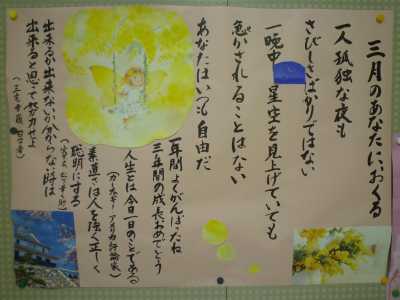 三月のあなたにおくる
一人孤独な夜も
さびしさばかりではない
一晩中 星空を見上げていても
急かされることはない
あなたはいつも自由だ
一年間よくがんばったね
三年間の成長おめでとう
人生とは今日一日のことである
(カーネギー・アメリカ評論家)
素直さは人を強く正しく
聡明にする
出来るか出来ないか分からない時は
出来ると思って努力せよ